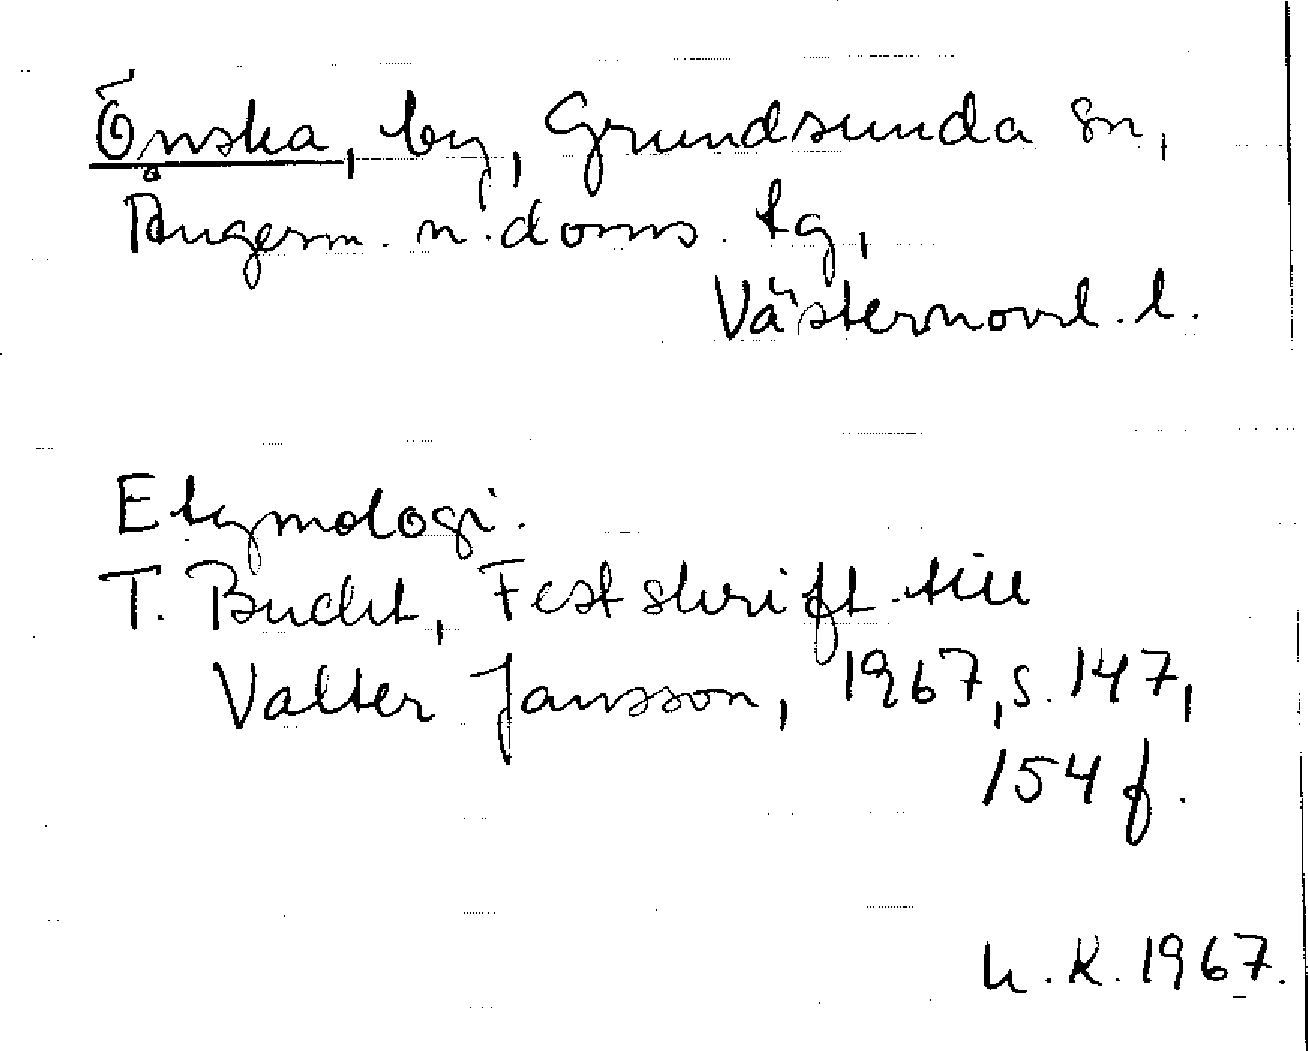 Önska, by, Grundsunda sn,
Ångerm. n. doms. tg,
Västernorrl. l.
Etymologi.
T. Bucht, Festskrift till
Valter Jansson, 1967, s. 147,
154 f.
L. K. 1967.